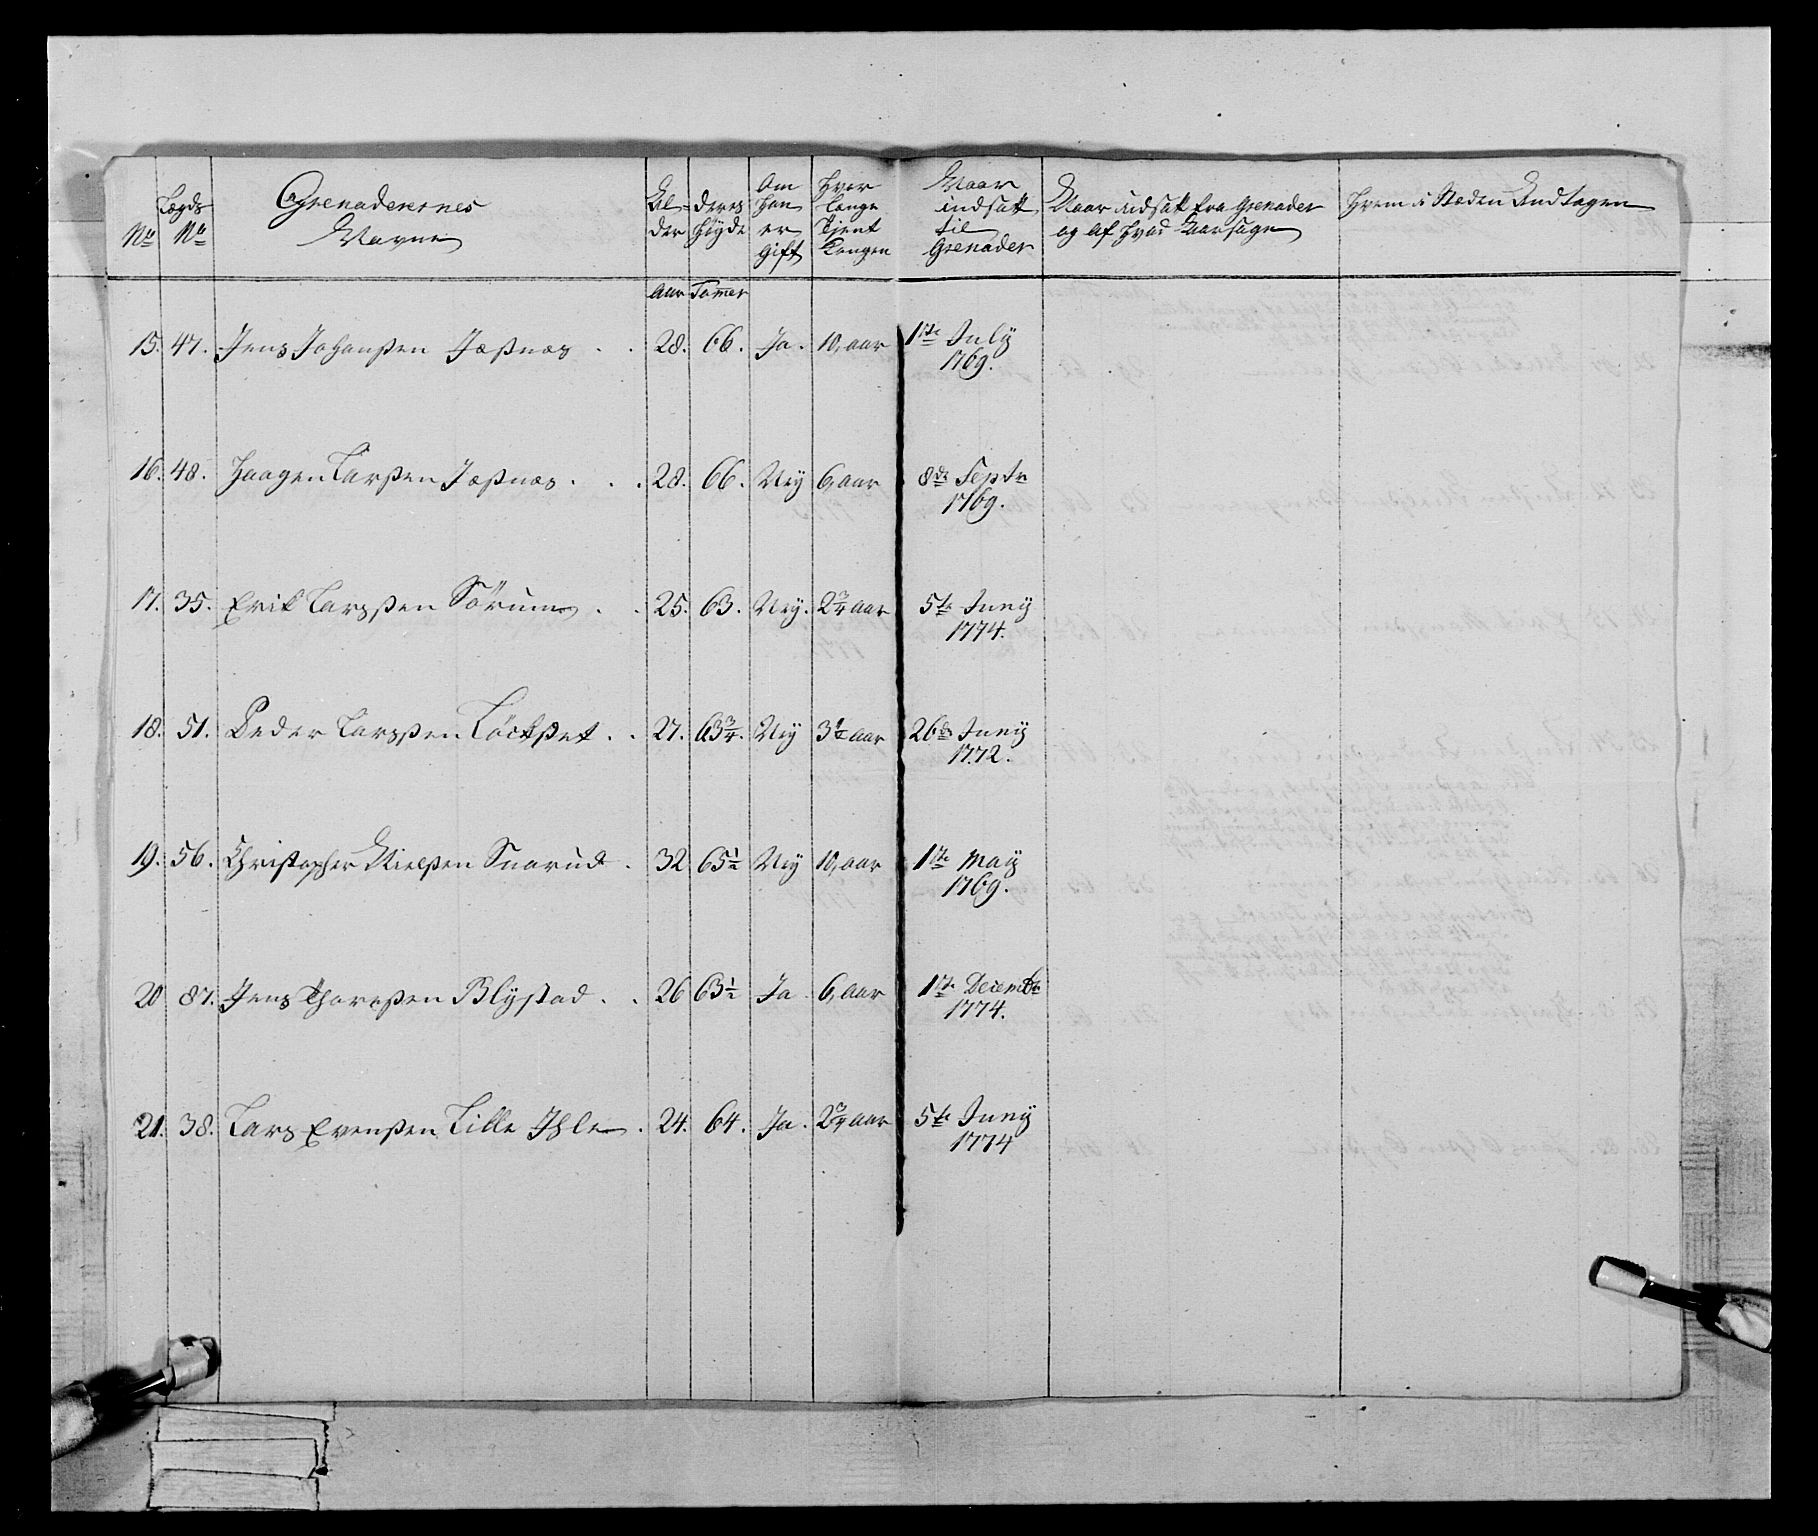 No
Lægds No
Grenaderernes Navne
Al-der
Deres Høyde
Om Han er Gift
Hvor Længe Tjent Kongen
Naar indsatt til Grenader
Naar udsatt fra Grenader og af hvad Aarsage
Hvem i Stæden Andtagen
Aar Tomer
15. 47. Jens Johanßen Jæßnæs . . 28. 66. Ja. 10, aar 1ste July 1769.
16. 48. Haagen Larßen Jæßnæs . . . 28. 66. Ney 6, aar 8de Septr 1769.
17. 35. Erik Larsßen Sörum . . 25. 63. Ney. 2¾ aar 5te Juny 1774.
18. 51. Peder Larsßen Löckßet . . 27. 63¾. Ney 3½ aar 26de Juny 1772.
19. 56. Christopher Nielßen Snarud . 32 65½ Ney 10, aar 1ste May 1769.
20 87. Jens Thoreßen Blÿstad . . 26 63½ Ja 6, aar 1ste Decembr 1774.
21. 38. Lars Evenßen Lille Ihle . 24. 64. Ja. 2¾ aar 5te Juny 1774